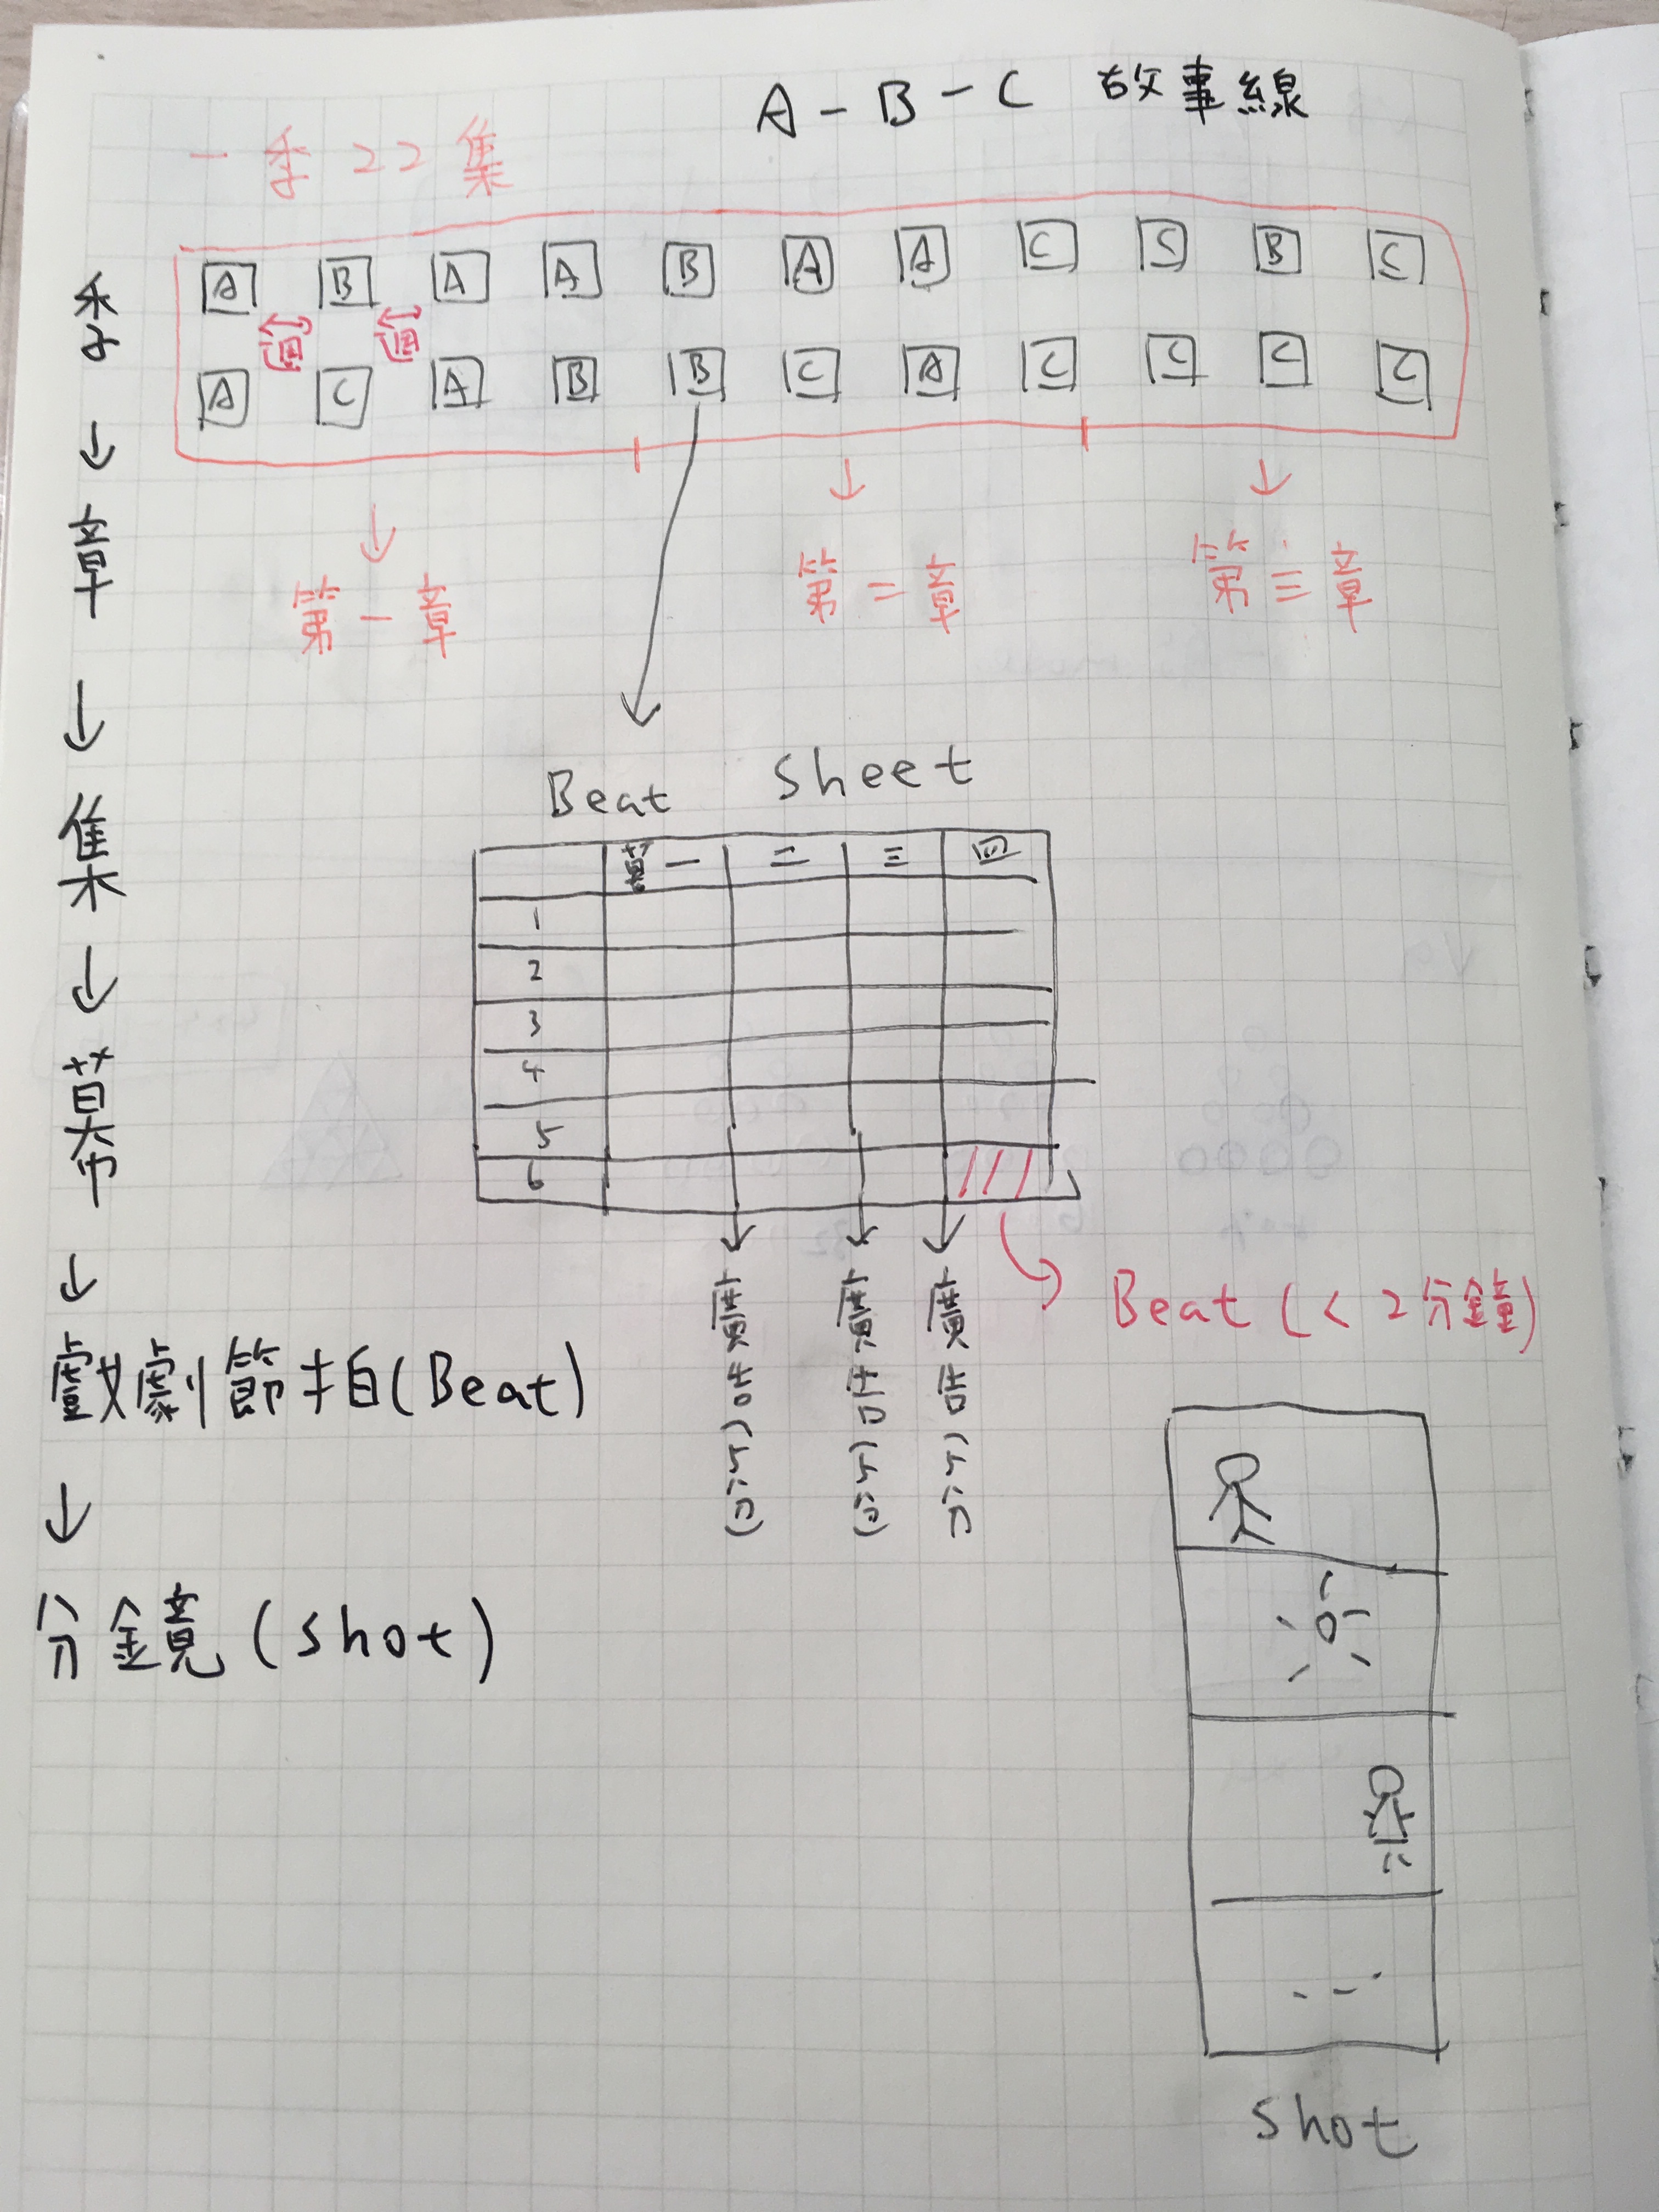 A-B-C 故事線
一季 22 集
A B A A B A A C C B C
週 週
A C A B B C A C C C C
第一章
第二章
第三章
季
↓
章
↓
集
↓
幕
↓
戲劇節拍(Beat)
↓
分鏡(shot)
Beat Sheet
幕一 二 三 四
1
2
3
4
5
6
廣告(5分)
廣告(5分)
廣告(5分)
Beat (<2分鐘)
...
Shot